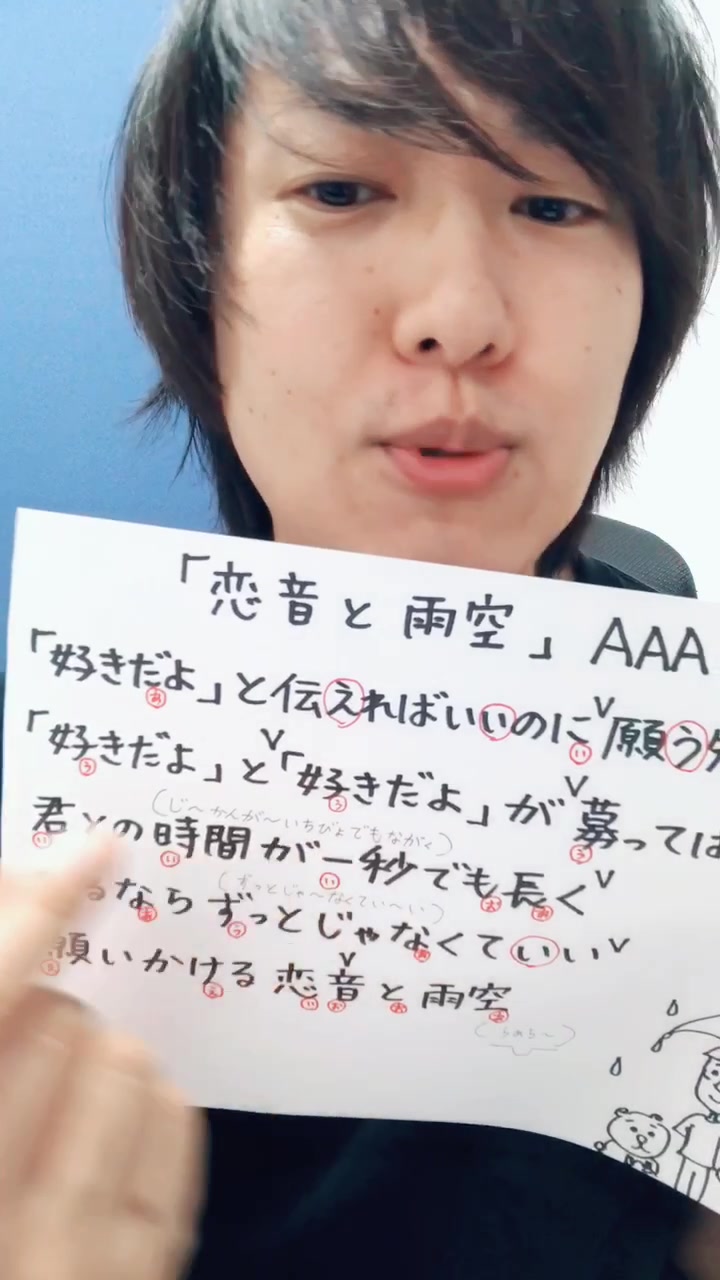 「恋音と雨空」AAA
「好きだよ」と伝えればいいのに 願う
「好きだよ」と「好きだよ」が募っては
(じ〜かんが〜いちびょでもながく)
君との時間が一秒でも長く
(ずっとじゃ〜なくてい〜い)
るならずっとじゃなくていい
願いかける 恋音と雨空